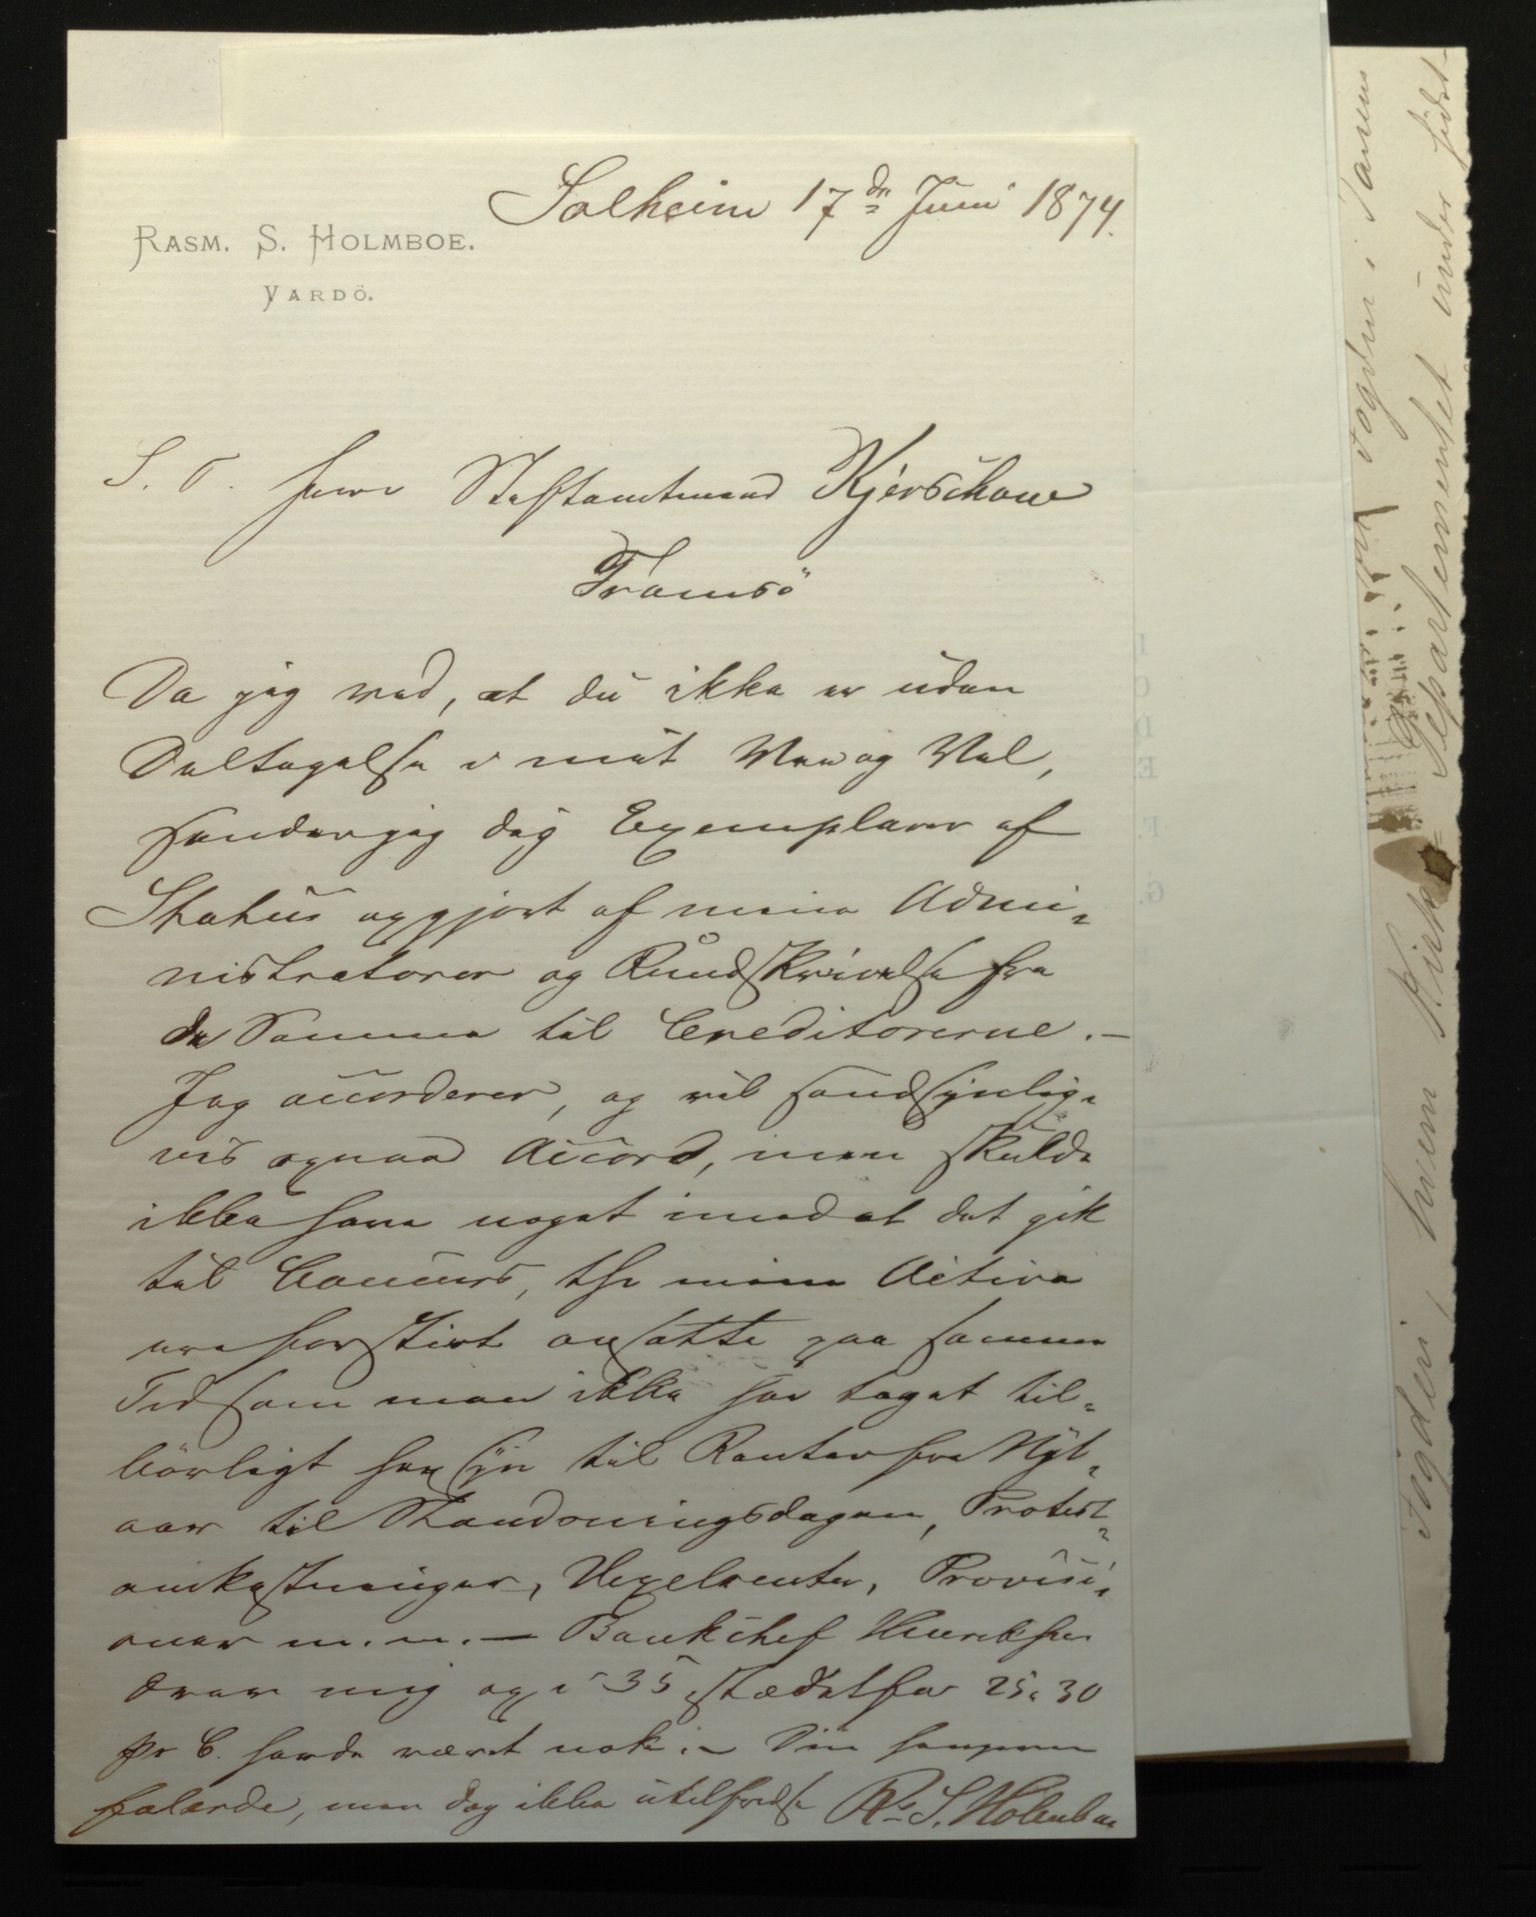 Solheim 17de Juni 1874.
RASM. S. HOLMBOE.
VARDÖ.
S. T. Herr Stiftamtmand Kjerschow
Tromsö
Da jeg ved, at du ikke er uden
Deltagelse i mit Vee og Vel,
sender jeg dig Exemplarer af
Status opgjort af mine Admi-
nistratorer og Rundskrivelse fra
de Samme til Creditorerne. —
Jeg accorderer, og vil sandsynlig-
vis opnaa Accord, men skulde
ikke have noget imod at det gik
til Concurs, thi mine Activa
ere for stivt ansatte paa samme
Tid som man ikke har taget til-
børligt hensyn til Renter fra Nyt-
aar til Standsningsdagen, Protest-
omkostninger, Vexelrenter, Provisi-
oner m. m. — Bankchef Henriksen
drev mig op i 35 istædetfor 25 a 30
pr C. havde været nok. — Din hengivne
, men dog ikke utilfredse Rs. S. Holmboe
Fogden i Tanens
Fogderi, hvem Kirke-Departementet under sidst-